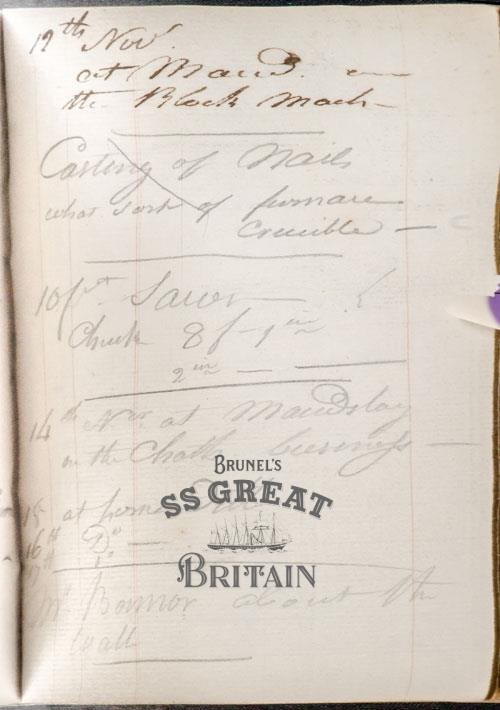 12th Nov.
at Maud. on
the Block Mach
Casting of Nails
what sort of furnace
Crucible —
10f Saws
Chuck 8f - 9in
2in —
14th Nov at Maudslay
on the Chalk business —
15 at
16th Do —
17th
Mr about the
Wall
BRUNEL'S
SS GREAT
BRITAIN